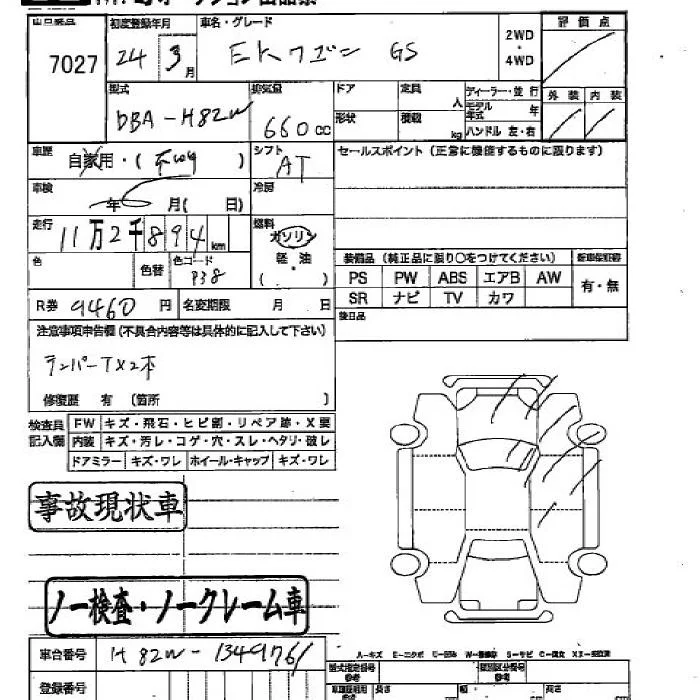 出品番号 初度登録年月 車名・グレード 評価点
7027 24 3月 EKワゴン GS 2WD・4WD
型式 排気量 ドア 定員 人 ディーラー・並行 外装 内装
DBA-H82W 660cc 形状 積載 kg モデル年式 年
ハンドル 左・右
車歴 自家用・( ) シフト AT セールスポイント(正常に機能するものに限ります)
車検 年 月( 日) 冷房
走行 11万2千894km 燃料 ガソリン・軽油 ( )
色 色替 色コード P38
装備品(純正品に限り○をつけてください) 新車保証書
PS PW ABS エアB AW 有・無
SR ナビ TV カワ
R券 9460円 名変期限 月 日 後日品
注意事項申告欄(不具合内容等は具体的に記入して下さい)
テンパーT×2本
修復歴 有(箇所 )
検査員記入欄 FW キズ・飛石・ヒビ割・リペア跡・X要
内装 キズ・汚レ・コゲ・穴・スレ・ヘタリ・破レ
ドアミラー キズ・ワレ ホイール・キャップ キズ・ワレ
事故現状車
ノー検査・ノークレーム車
車台番号 H82W-1349761
登録番号
型式指定番号 参考 類別区分番号 参考
長さ 幅 高さ